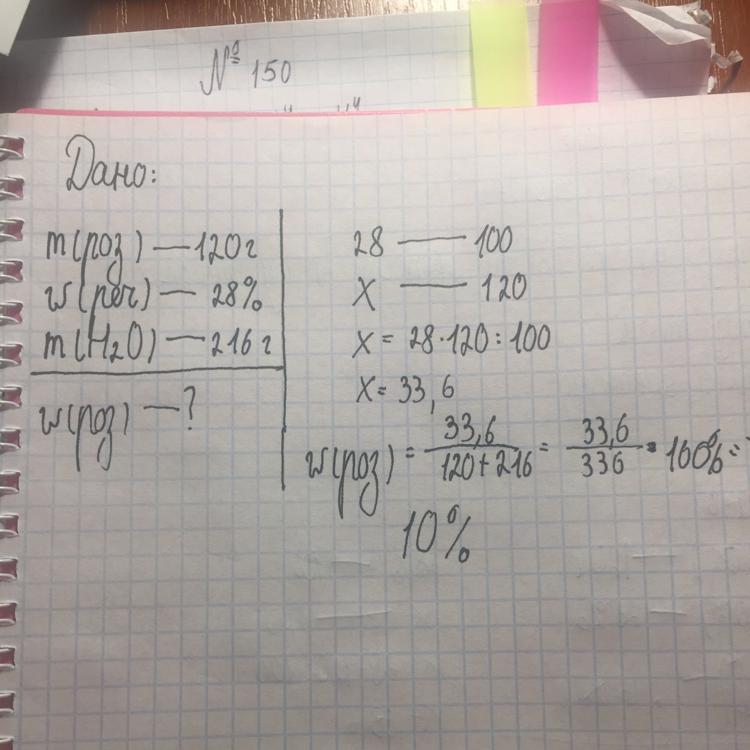 № 150
Дано:
m(роз) — 120г
w(реч) — 28%
m(H₂O) — 216г
w(роз) — ?
28 — 100
X — 120
X = 28·120:100
X = 33,6
w(роз) = 33,6/120+216 = 33,6/336 · 100% =
10%